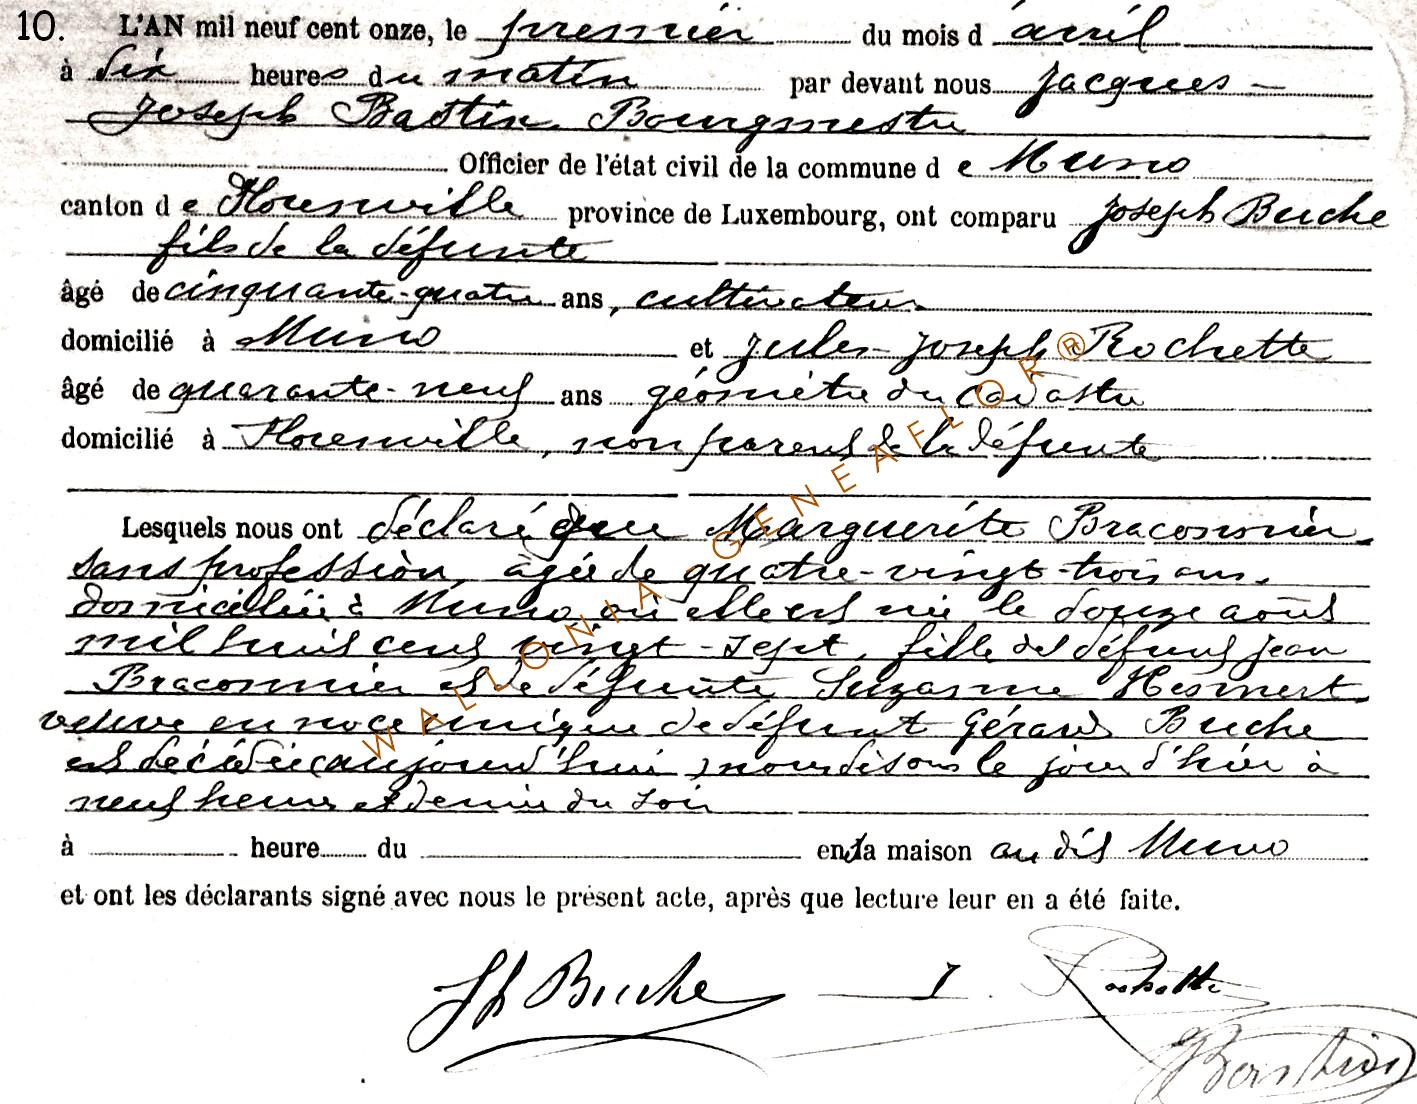 10. L'AN mil neuf cent onze, le premier du mois d avril
à dix heures du matin par devant nous Jacques-
Joseph Bastin Bourgmestre
Officier de l'état civil de la commune d e Muno
canton d e Florenville province de Luxembourg, ont comparu Joseph Buche
fils de la défunte
âgé de cinquante-quatre ans, cultivateur
domicilié à Muno et Jules-Joseph Rochette
âgé de quarante-neuf ans géomètre du cadastre
domicilié à Florenville, non parent de la défunte
Lesquels nous ont déclaré que Marguerite Braconnier
sans profession, âgée de quatre-vingt-trois ans,
domiciliée à Muno, où elle est née le douze août
mil huit cent vingt-sept, fille de défunt Jean
Braconnier et de défunte Suzanne Hesnert
veuve en noce unique de défunt Gérard Buche
est décédée (aujourd'hui) nous disons le jour d'hier à
neuf heures et demie du soir
à heure du en sa maison audit Muno
et ont les déclarants signé avec nous le présent acte, après que lecture leur en a été faite.
Jh Buche J. Rochette
JBastin
WALLONIA GENEAFLOR®